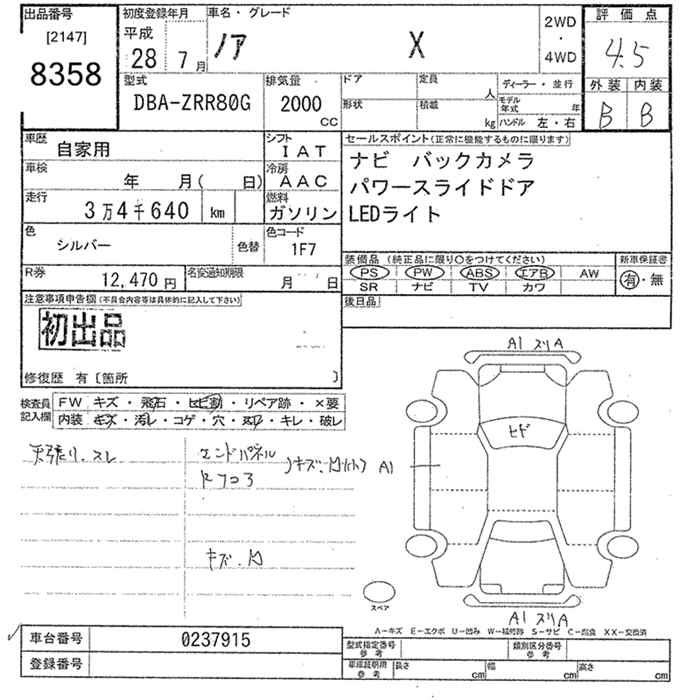 出品番号 初度登録年月 車名・グレード 2WD 評価点
[2147] 平成 ・
8358 28 7月 ノア X 4WD 4.5
型式 排気量 ドア 定員 人 ディーラー・並行 外装 内装
DBA-ZRR80G 2000 CC 形状 積載 kg モデル年式 年 B B
ハンドル 左・右
車歴 自家用 シフト IAT セールスポイント(正常に機能するものに限ります)
車検 年 月( 日) 冷房 AAC ナビ バックカメラ
走行 3万4千640 km 燃料 ガソリン パワースライドドア
色 シルバー 色替 色コード 1F7 LEDライト
装備品 (純正品に限り○をつけてください) 新車保証書
R券 12,470円 名変通知期限 月 日 PS PW ABS エアB AW 有・無
SR ナビ TV カワ
注意事項申告欄(不具合内容等は具体的に記入して下さい) 後日品
初出品
修復歴 有〔箇所 〕
A1 スリA
検査員 FW キズ・飛石・ヒビ割・リペア跡・×要
記入欄 内装 キズ・汚レ・コゲ・穴・スレ・キレ・破レ
天張り、スレ エンドパネル
キズ、凹 A1
キズ、凹
スペア
A1 スリA
A-キズ E-エクボ U-凹み W-補修跡 S-サビ C-腐食 XX-交換済
車台番号 0237915 型式指定番号 参考 類別区分番号 参考
登録番号 車庫証明用 参考 長さ cm 幅 cm 高さ cm